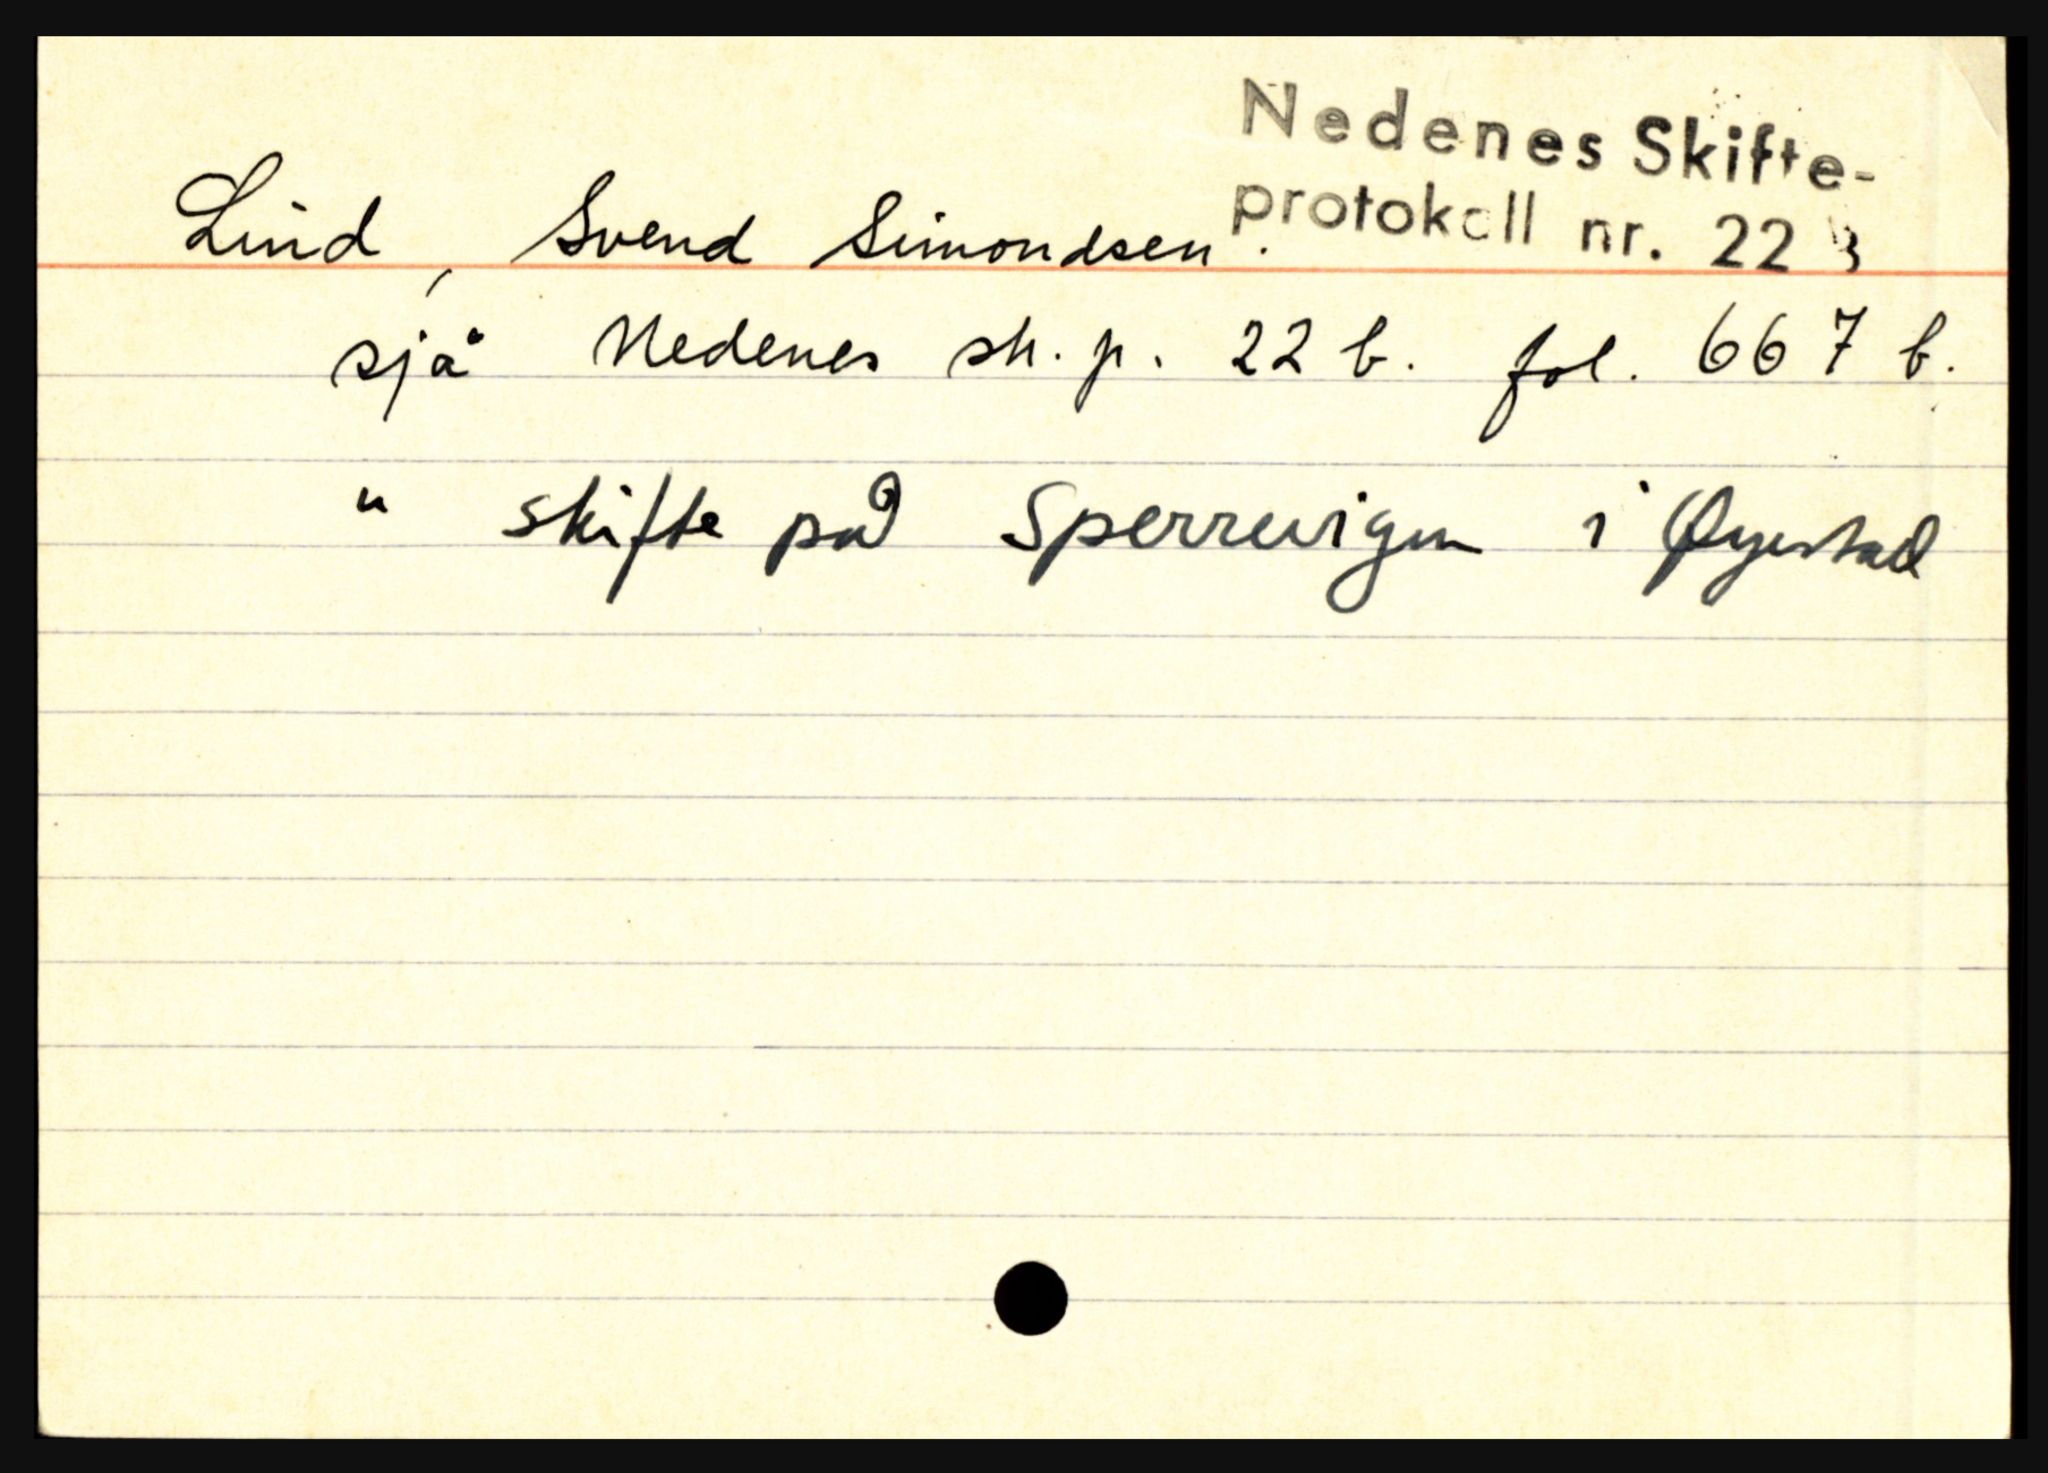 Nedenes Skifte-
protokoll nr. 22 B
Lind, Svend Simondsen.
sjå Nedenes sk. p. 22 b. fol. 667 b.
" skifte på Sperrevigen i Øyestad